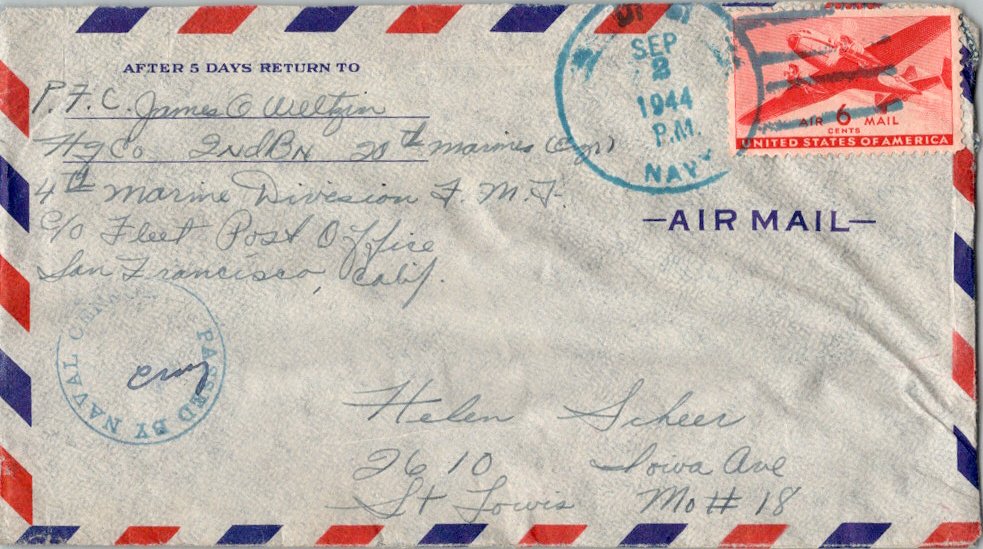 AFTER 5 DAYS RETURN TO
P.F.C. James O Weltzin
Hq Co 2nd Bn 20th Marines (Engr)
4th Marine Division F.M.F.
c/o Fleet Post Office
San Francisco, Calif.
SEP
2
1944
P.M.
NAVY
AIR 6 MAIL
CENTS
UNITED STATES OF AMERICA
—AIR MAIL—
PASSED BY NAVAL
Helen Scheer
2610 Iowa Ave
St Louis Mo # 18